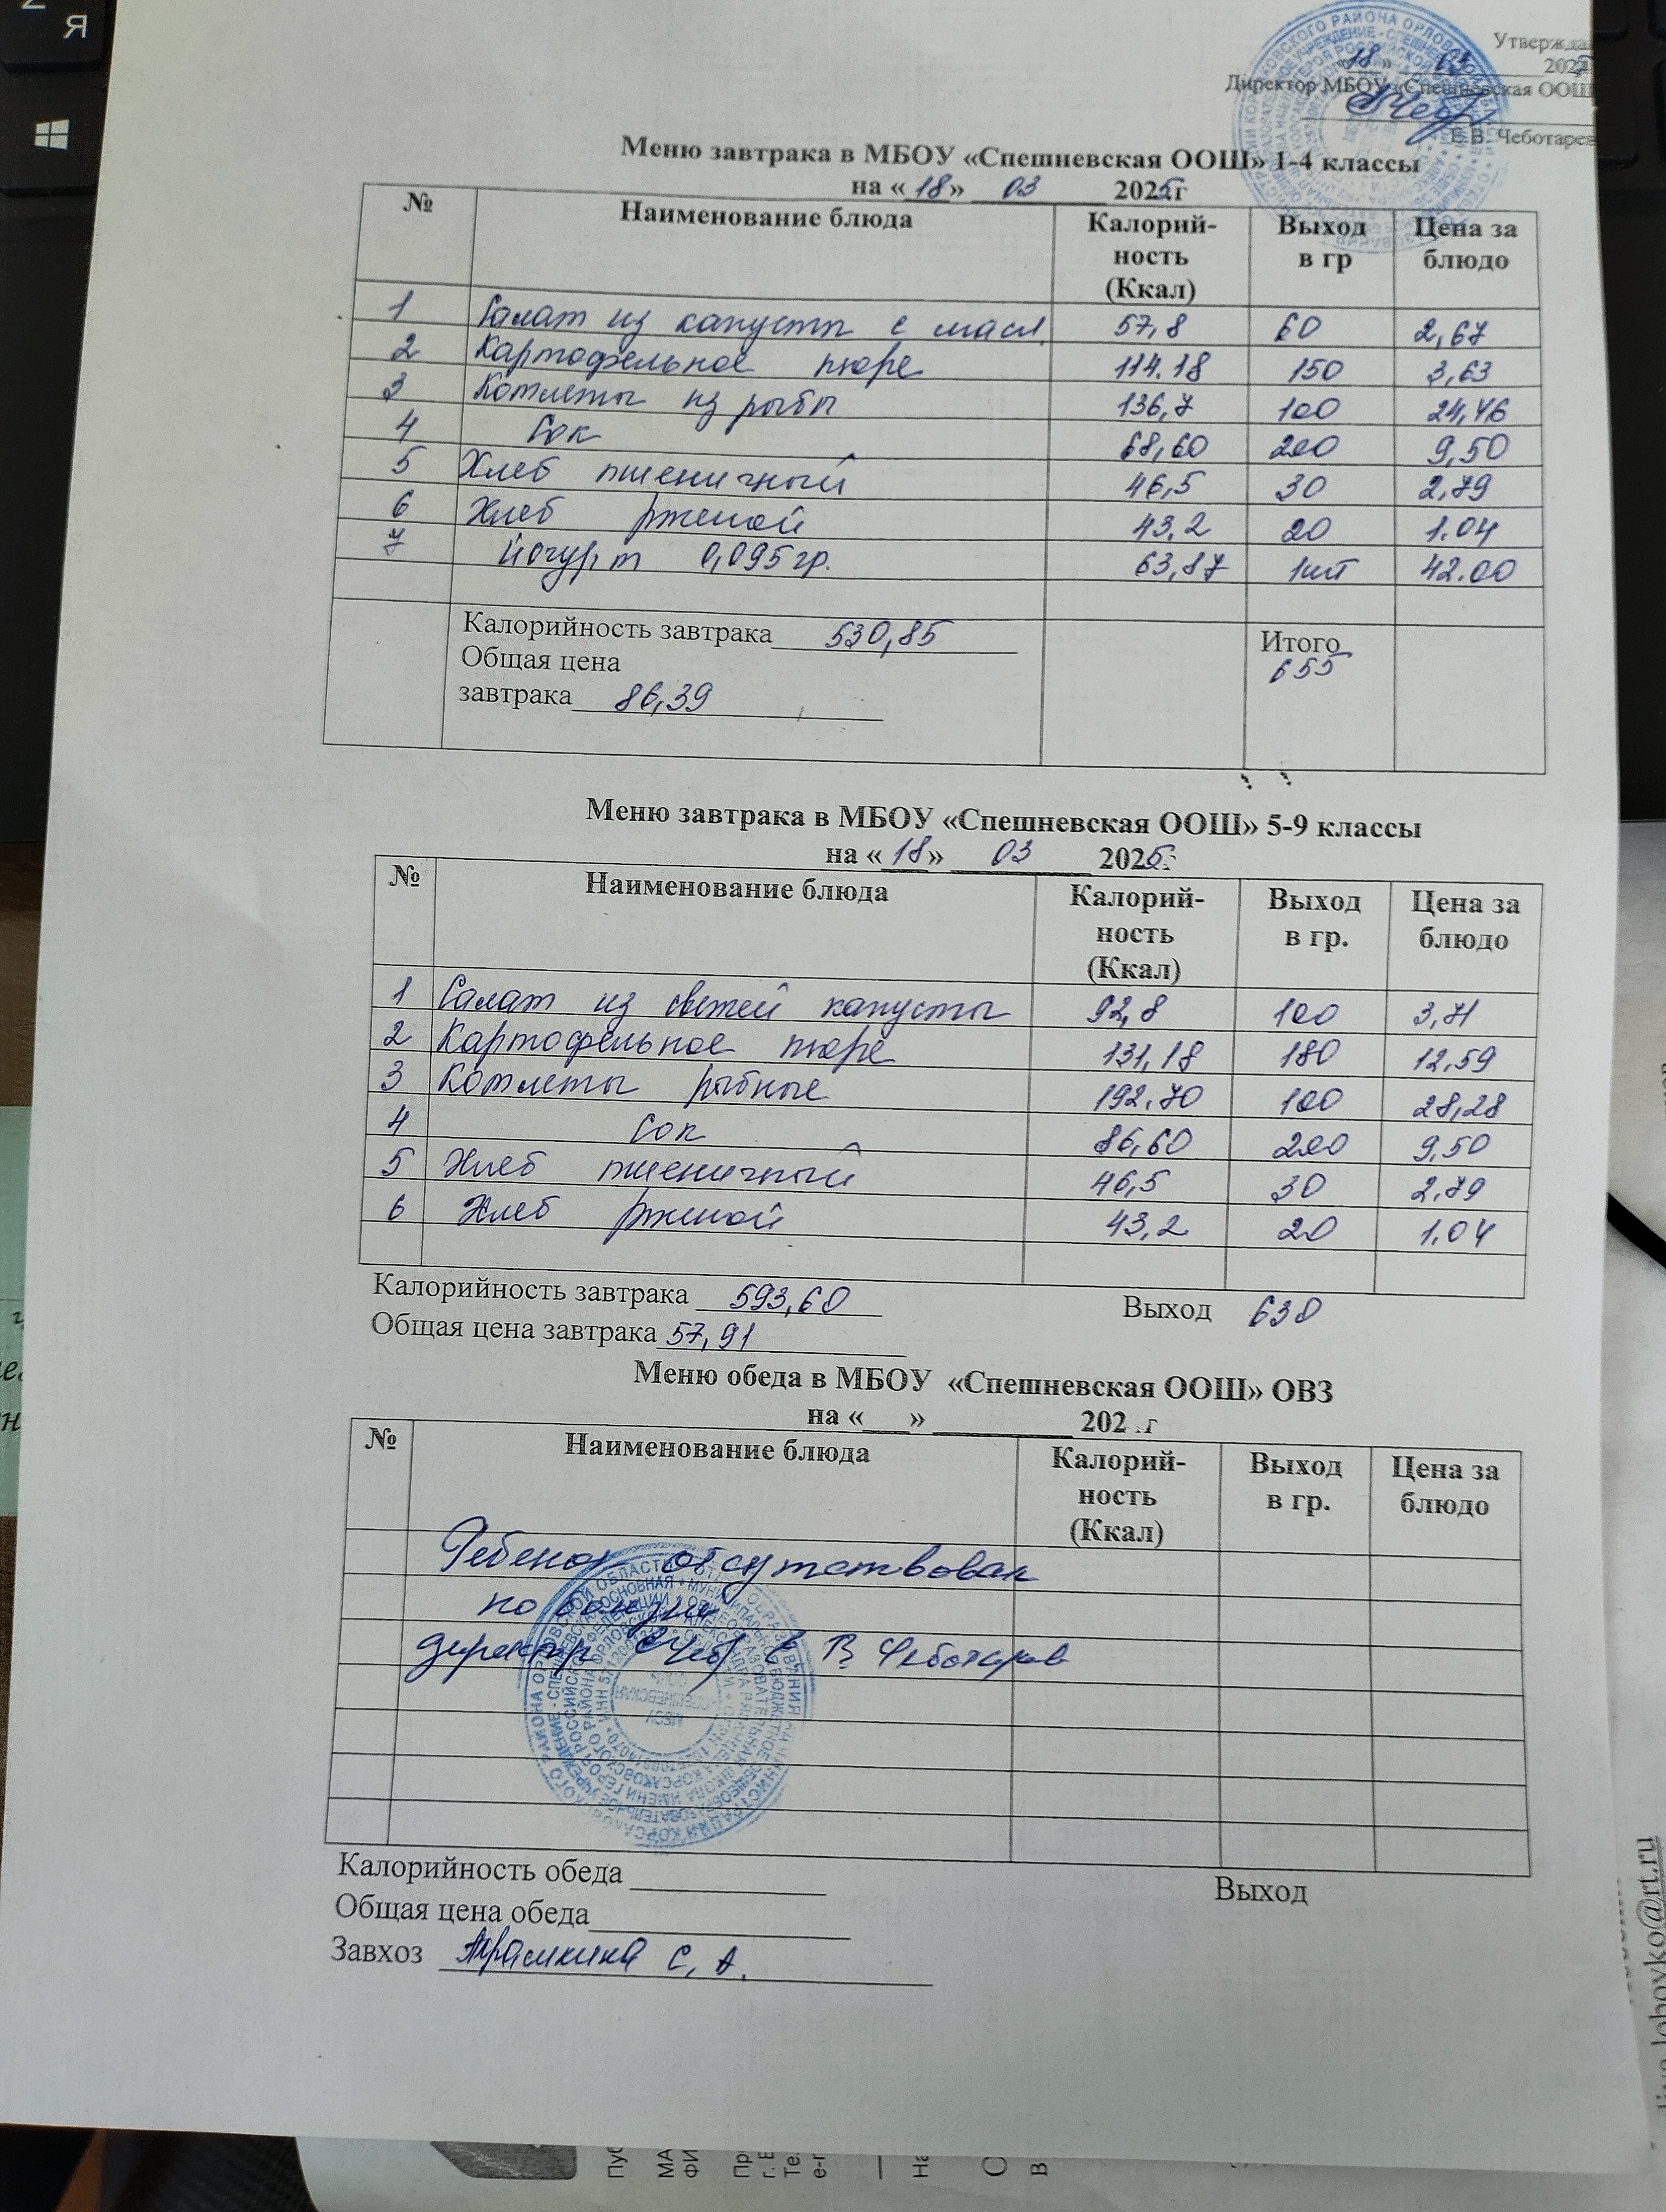 Я
Утвержда
«18» 03 2025
Директор МБОУ «Спешневская ООШ
Е.В. Чеботарев
Меню завтрака в МБОУ «Спешневская ООШ» 1-4 классы
на «18» 03 2025г
№ Наименование блюда Калорий-ность (Ккал) Выход в гр Цена за блюдо
1 Салат из капусты с масл. 57,8 60 2,67
2 Картофельное пюре 114.18 150 3,63
3 Котлеты из рыбы 136,7 100 24,46
4 Сок 68,60 200 9,50
5 Хлеб пшеничный 46,5 30 2,79
6 Хлеб ржаной 43,2 20 1.04
7 йогурт 0,095гр. 63,87 1шт 42.00
Калорийность завтрака 530,85 Итого
Общая цена 655
завтрака 86,39
Меню завтрака в МБОУ «Спешневская ООШ» 5-9 классы
на «18» 03 2025
№ Наименование блюда Калорий-ность (Ккал) Выход в гр. Цена за блюдо
1 Салат из свежей капусты 92,8 100 3,71
2 Картофельное пюре 131,18 180 12,59
3 Котлеты рыбные 192,70 100 28,28
4 Сок 86,60 200 9,50
5 Хлеб пшеничный 46,5 30 2,79
6 Хлеб ржаной 43,2 20 1.04
Калорийность завтрака 593,60 Выход 630
Общая цена завтрака 57,91
Меню обеда в МБОУ «Спешневская ООШ» ОВЗ
на «___» 202 г
№ Наименование блюда Калорий-ность (Ккал) Выход в гр. Цена за блюдо
Ребенок отсутствовал
по болезни
директор Е В Чеботарев
Калорийность обеда Выход
Общая цена обеда
Завхоз С. А.